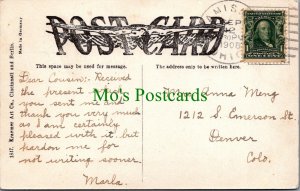 POST CARD
This space may be used for message.
The postal address only to be written here.
Made in Germany
1517. Kraemer Art Co., Cincinnati and Berlin.
Dear Cousin: Received
the present that
you sent me and
thank you very much
as I am certainly
pleased with it. but
pardon me for
not writing sooner.
Marla
Miss Anna Meng
1212 S. Emerson St.
Denver
Colo.
Mo's Postcards
SEP
1908